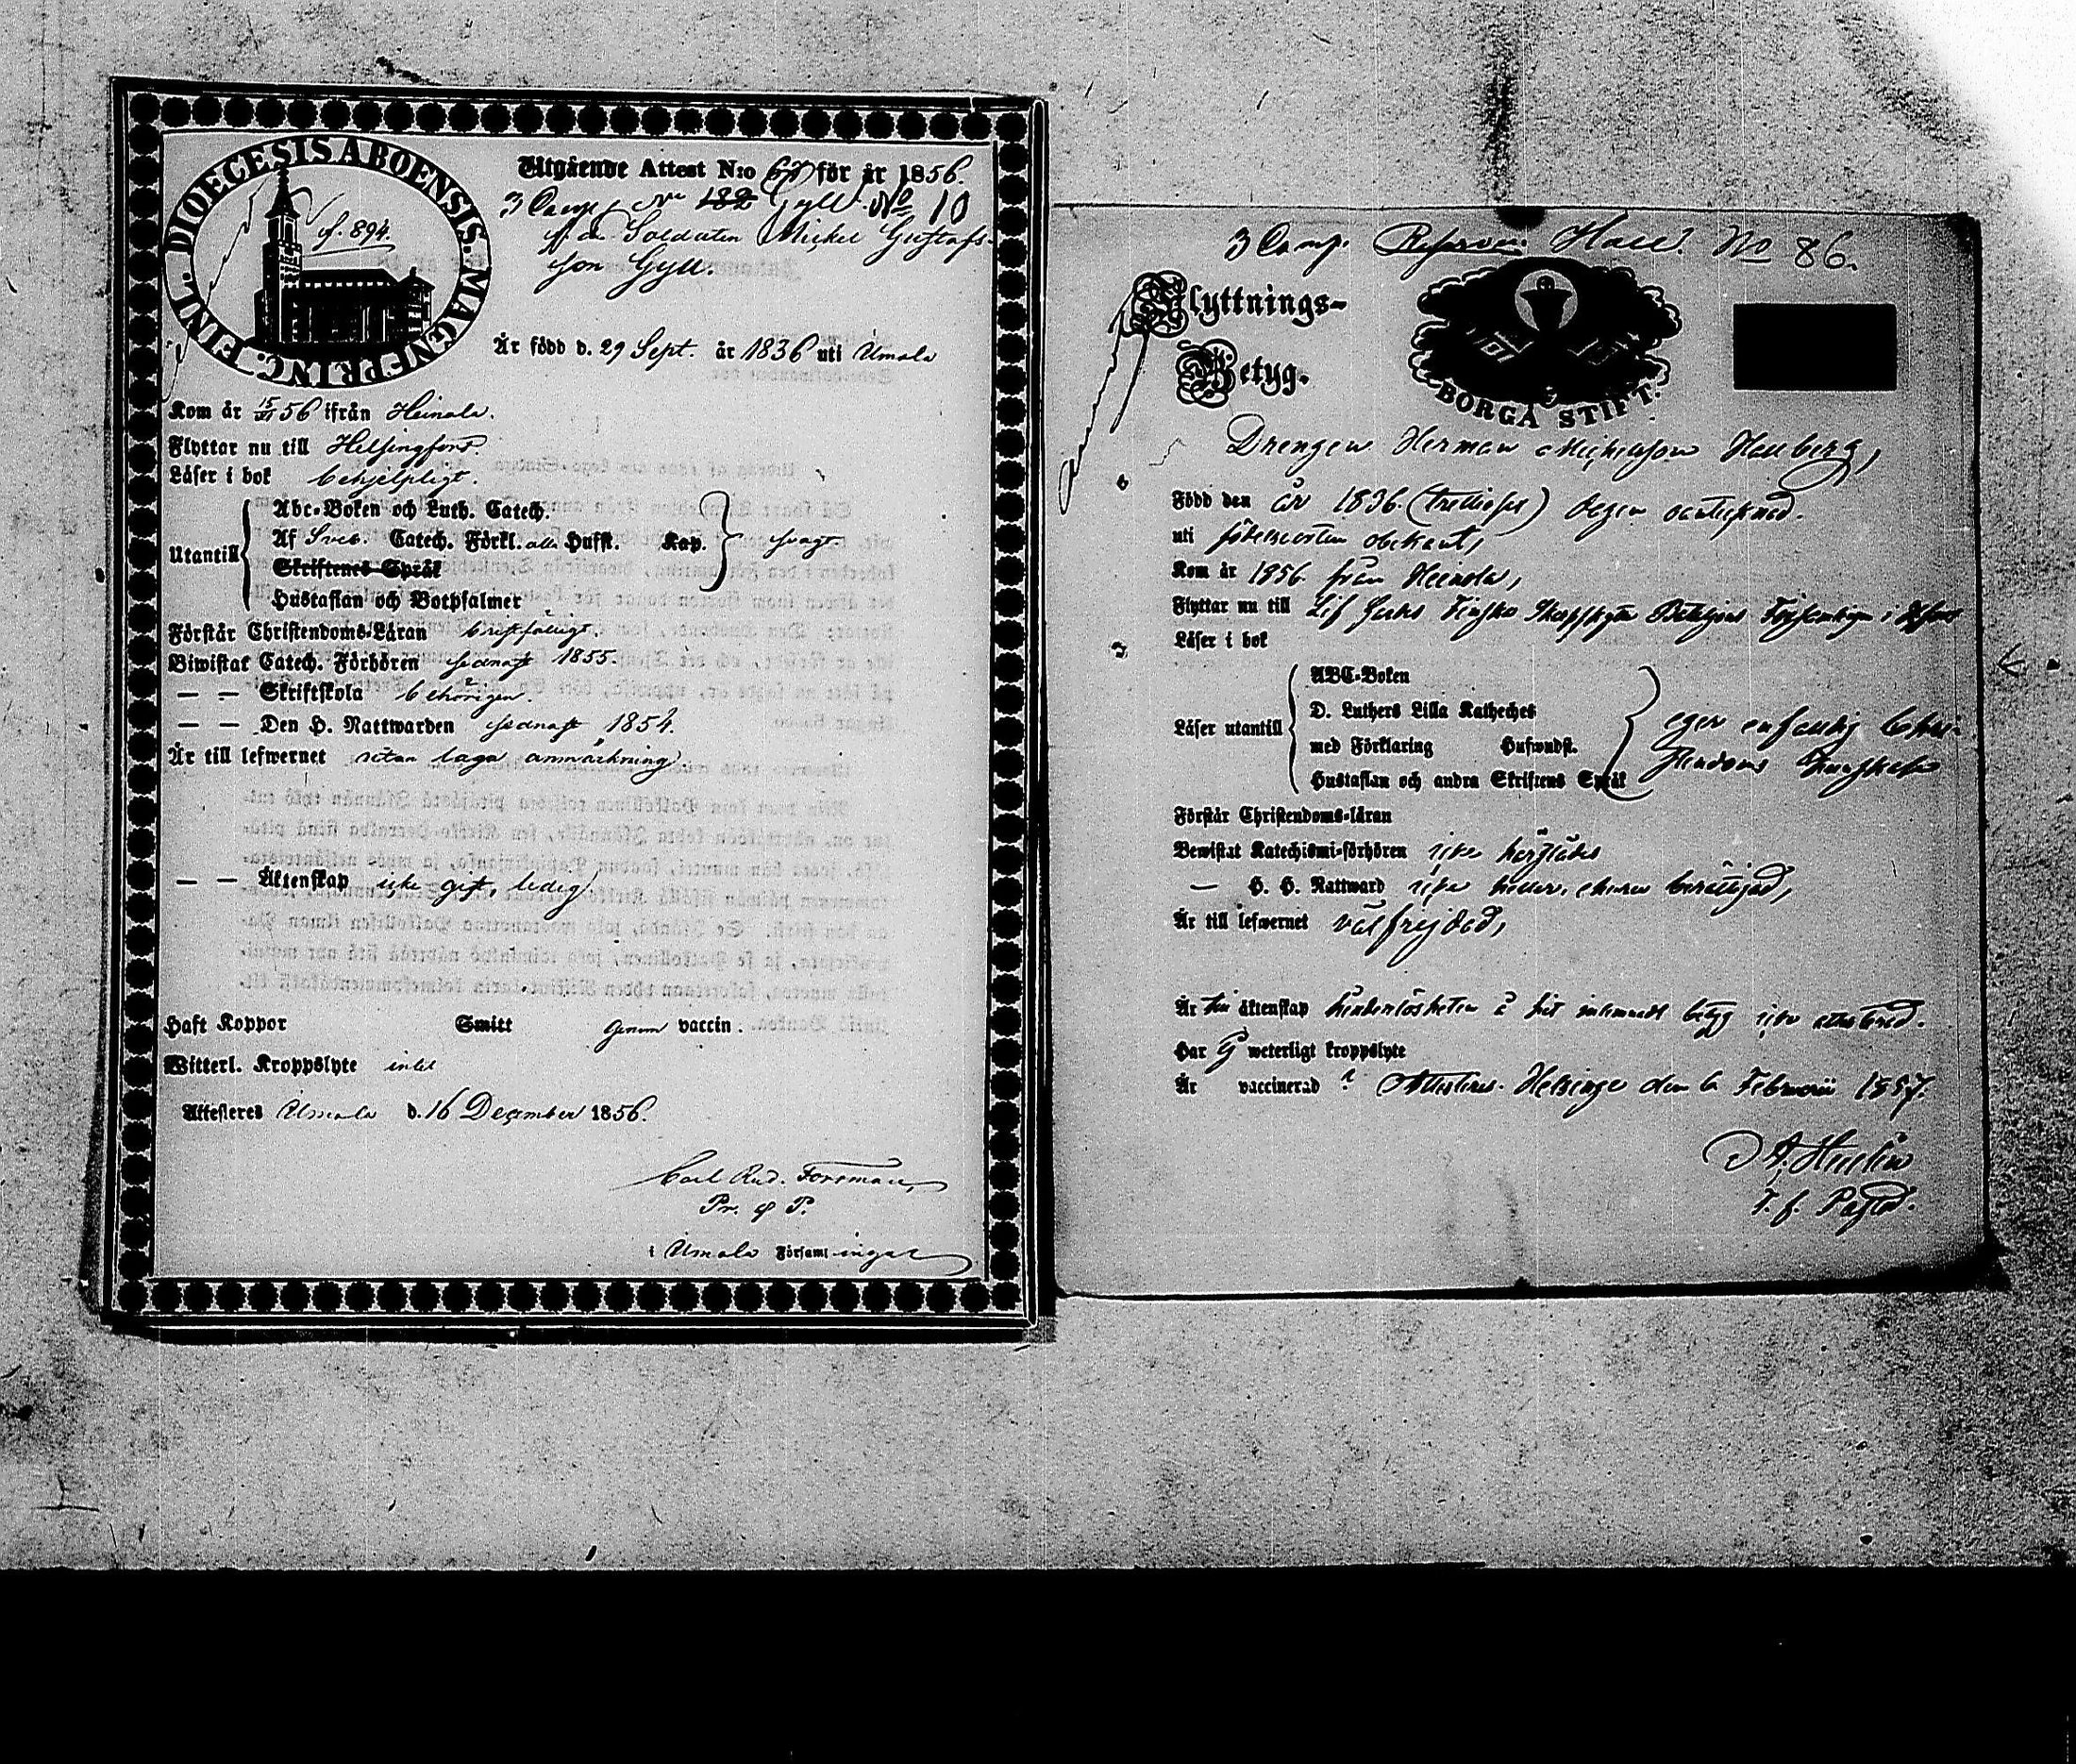 DIOECESIS ABOENSIS. MAGN. PRINC. FINL.
f. 894.
Utgående Attest N:o för år 1856.
3 Comp. Gyll. No 10
Soldaten Mickel Gustafs-
son Gyll.
Är född d. 29 Sept. år 1836 uti Urmala
Kom år 56 ifrån Heinola.
Flyttar nu till Helsingfors.
Läser i bok behjelpligt.
Utantill
Abc-Boken och Luth. Catech.
Af Sveb. Catech. Förkl. alla Hufst. Kap.
svagt.
Skriftenes Språk
Hustaflan och Botpsalmer
Förstår Christendoms-Läran bristfälligt.
Biwistat Catech. Förhören sednast 1855.
— — Skriftskola behörigen.
— — Den H. Nattwarden sednast 1854.
Är till lefwernet utan laga anmärkning.
— — Äktenskap icke gift, ledig
Haft Koppor Smitt genom vaccin.
Witterl. Kroppslyte intet
Attesteres Urmala d. 16 December 1856.
Carl Rud. Forsman,
Pr. & P.
i Urmala Församlingar
3 Comp. Hall. No 86.
Flyttnings-
Betyg.
BORGÅ STIFT.
Drengen Herman Michelsson Hallberg,
Född den år 1836. (trettiosex) dagen oantecknad.
uti födelseorten obekant,
Kom år 1856 från Heinola,
Flyttar nu till Lif Gardes Finska Skarpskytte Bataljons Församlingen i H:fors
Läser i bok
Läser utantill
ABC-Boken
D. Luthers Lilla Katheches
med Förklaring Hufwudst.
Hustaflan och andra Skriftens Språk
eger enfaldig Chri-
stendoms kunskap
Förstår Christendoms-läran
Bewistat Katechismi-förhören icke härstädes
— H. H. Nattward icke heller, ehuru berättigad,
Är till lefwernet välfrejdad,
Är till äktenskap hinderlösheten å hit inlemnadt betyg icke attesterad.
Har ej weterligt kroppslyte
Är vaccinerad ? Attesteras. Helsinge den 6 Februarii 1857.
T. f. Past.